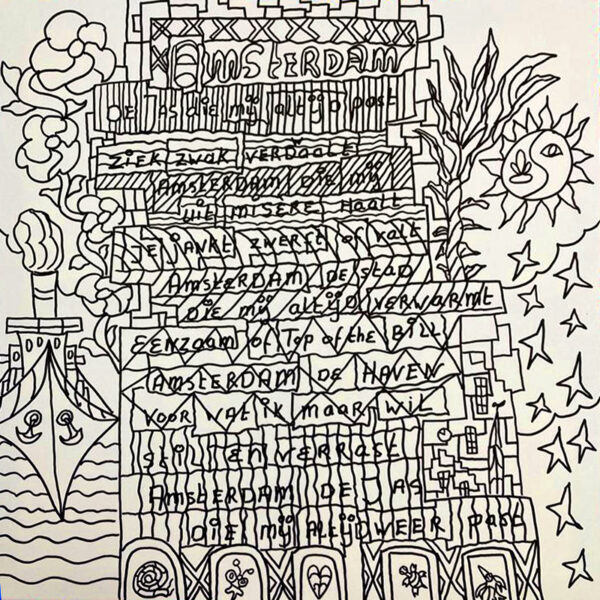 AMSTERDAM
DE JAS die mij altijd past
ziek zwak VERDAALD
AMSTERDAM DIE mij
uit misÈRE Haalt
JE JANKT zwerft of valt
AMSTERDAM DE stad
Die mij altijd VERWARMt
EENZAAM of Top of the Bill
AMSTERDAM DE HAVEN
Voor wat ik maar wil
stil EN VERRAST
AMSTERDAM DE JAS
DIE mij ALtijD WEER past